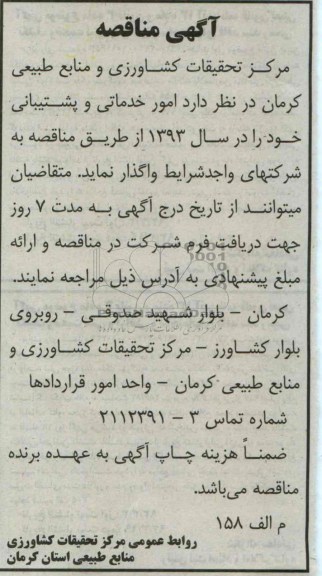 آگهی مناقصه
مرکـز تحقیقات کشـاورزی و منابع طبیعی
کرمان در نظر دارد امور خدماتی و پشـتیبانی
خود را در سـال ۱۳۹۳ از طریـق مناقصه به
شرکتهای واجدشرایط واگذار نماید. متقاضیان
میتواننـد از تاریخ درج آگهی بـه مدت ۷ روز
جهت دریافت فرم شـرکت در مناقصه و ارائه
مبلغ پیشنهادی به آدرس ذیل مراجعه نمایند.
کرمان – بلوار شـهید صدوقـی – روبروی
بلوار کشـاورز – مرکز تحقیقات کشـاورزی و
منابع طبیعی کرمان – واحد امور قراردادها
شماره تماس ۳ – ۲۱۱۲۳۹۱
ضمنـاً هزینه چـاپ آگهی به عهـده برنده
مناقصه می‌باشد.
م الف ۱۵۸
روابط عمومی مرکز تحقیقات کشاورزی
منابع طبیعی استان کرمان